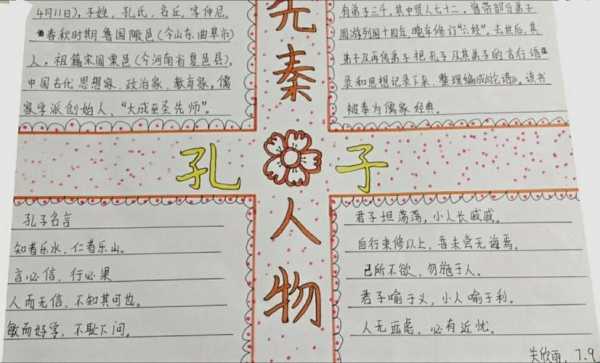 4月11日),子姓,孔氏,名丘,字仲尼,
春秋时期鲁国陬邑(今山东曲阜市)
人,祖籍宋国栗邑(今河南省夏邑县),
中国古代思想家、政治家、教育家,儒
家学派创始人、“大成至圣先师”。
有弟子三千,其中贤人七十二,曾带领部分弟子
周游列国十四年,晚年修订“六经”。去世后,其
弟子及再传弟子把孔子及其弟子的言行语
录和思想记录下来,整理编成《论语》。该书
被奉为儒家经典。
先秦
孔子
人物
孔子名言
知者乐水,仁者乐山。
言必信,行必果
人而无信,不知其可也。
敏而好学,不耻下问。
君子坦荡荡,小人长戚戚。
自行束脩以上,吾未尝无诲焉。
己所不欲,勿施于人。
君子喻于义,小人喻于利。
人无远虑,必有近忧。
7.9